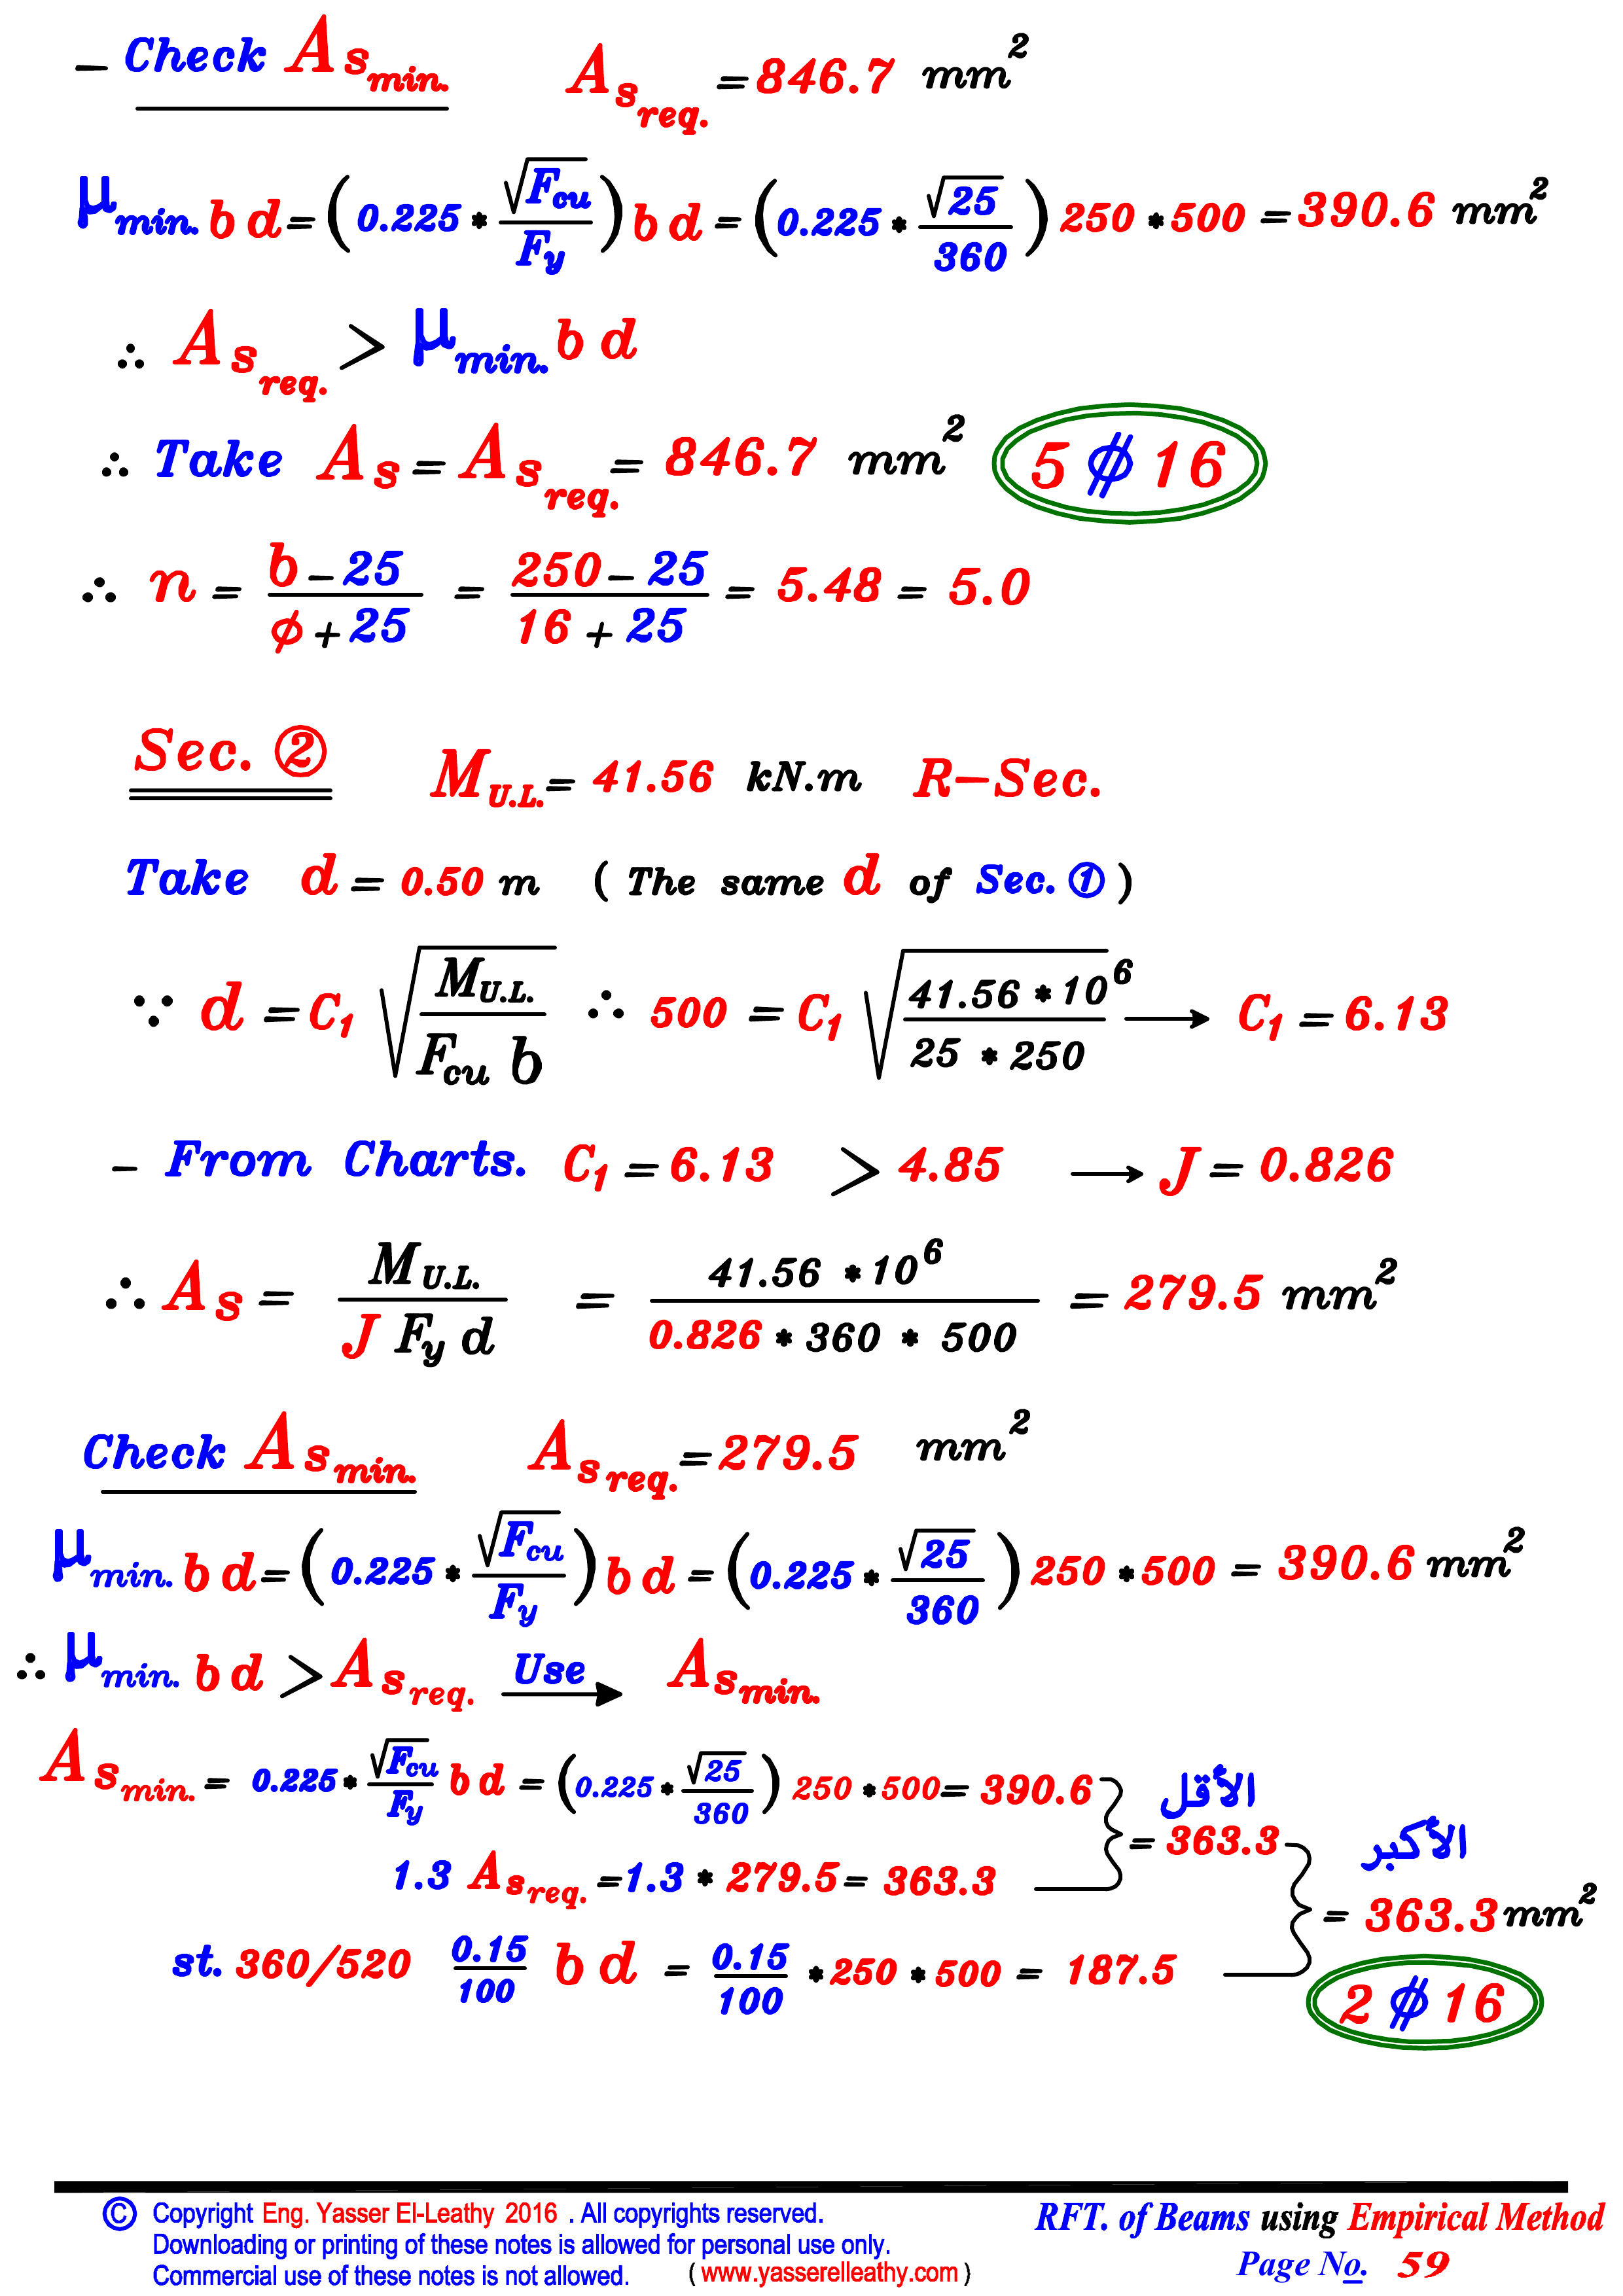 - Check As min. As req. = 846.7 mm²
μ min. b d = (0.225 * √Fcu / Fy) b d = (0.225 * √25 / 360) 250 * 500 = 390.6 mm²
∴ As req. > μ min. b d
∴ Take As = As req. = 846.7 mm² 5 ⌀ 16
∴ n = b - 25 / φ + 25 = 250 - 25 / 16 + 25 = 5.48 = 5.0
Sec. ② M U.L. = 41.56 kN.m R-Sec.
Take d = 0.50 m ( The same d of Sec. ① )
∵ d = C1 √(M U.L. / Fcu b) ∴ 500 = C1 √(41.56 * 10⁶ / 25 * 250) → C1 = 6.13
- From Charts. C1 = 6.13 > 4.85 → J = 0.826
∴ As = M U.L. / J Fy d = 41.56 * 10⁶ / 0.826 * 360 * 500 = 279.5 mm²
Check As min. As req. = 279.5 mm²
μ min. b d = (0.225 * √Fcu / Fy) b d = (0.225 * √25 / 360) 250 * 500 = 390.6 mm²
∴ μ min. b d > As req. Use → As min.
As min. = 0.225 * √Fcu / Fy b d = (0.225 * √25 / 360) 250 * 500 = 390.6 الأقل
1.3 As req. = 1.3 * 279.5 = 363.3 = 363.3 الأكبر
st. 360/520 0.15 / 100 b d = 0.15 / 100 * 250 * 500 = 187.5 = 363.3 mm²
2 ⌀ 16
© Copyright Eng. Yasser El-Leathy 2016 . All copyrights reserved.
Downloading or printing of these notes is allowed for personal use only.
Commercial use of these notes is not allowed. ( www.yasserelleathy.com )
RFT. of Beams using Empirical Method
Page No. 59